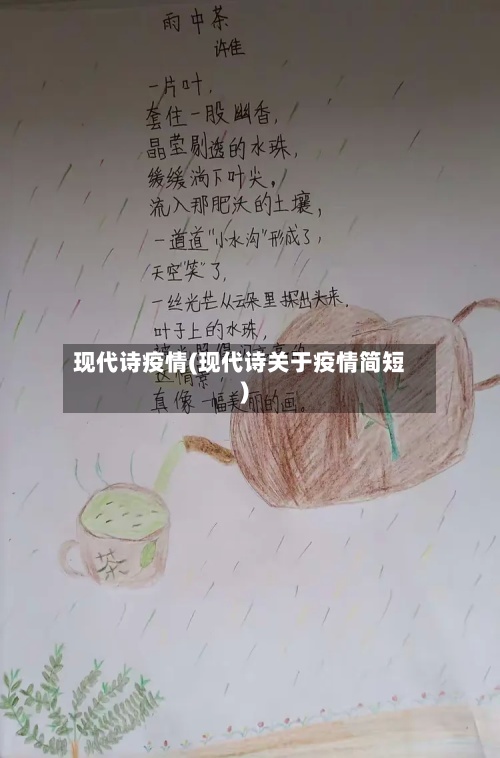 雨中茶
许佳
一片叶，
套住一股幽香，
晶莹剔透的水珠，
缓缓淌下叶尖，
流入那肥沃的土壤，
一道道“小水沟”形成了，
天空“笑”了，
一丝光芒从云朵里探出头来，
叶子上的水珠，
现代诗疫情(现代诗关于疫情简短
)
真像一幅美丽的画。
茶